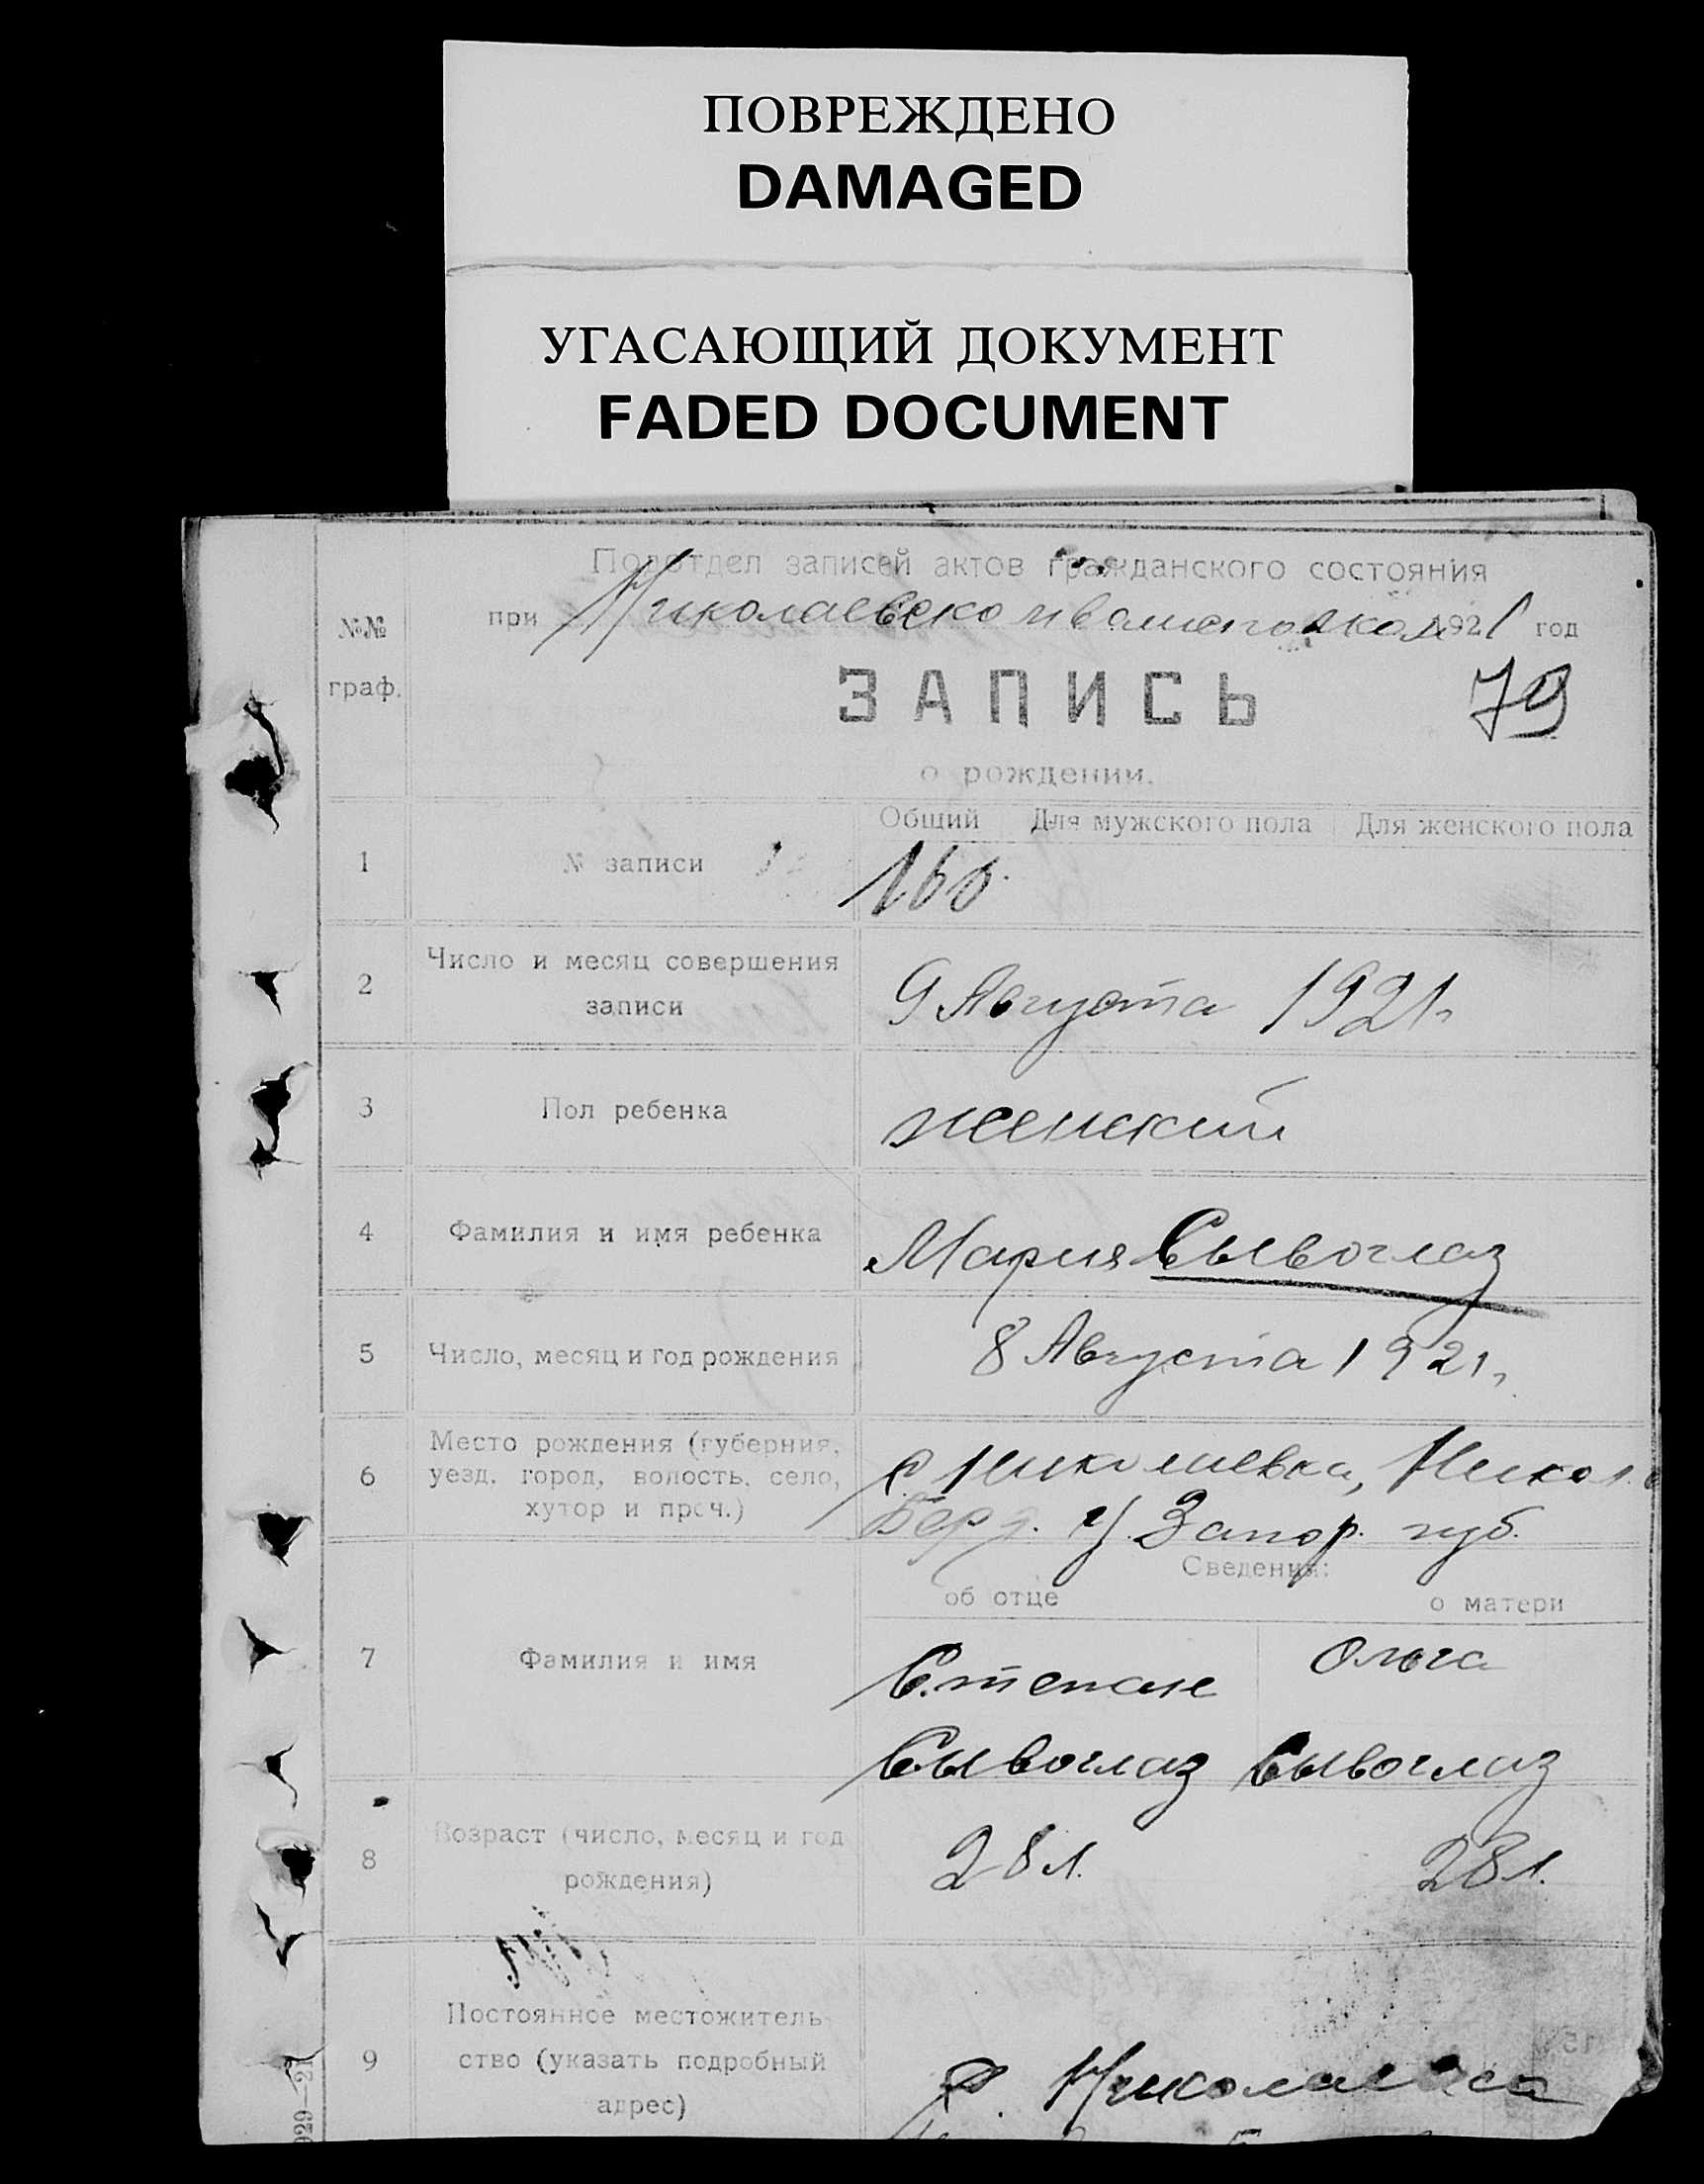 ПОВРЕЖДЕНО
DAMAGED
УГАСАЮЩИЙ ДОКУМЕНТ
FADED DOCUMENT
Подотдел записей актов гражданского состояния
при Николаевском 1921 год
№№ граф.
ЗАПИСЬ
79
о рождении.
Общий Для мужского пола Для женского пола
1 № записи 160
2 Число и месяц совершения
записи
9 Августа 1921 г.
3 Пол ребенка женский
4 Фамилия и имя ребенка Мария Сывоглаз
5 Число, месяц и год рождения 8 Августа 1921 г.
6 Место рождения (губерния,
уезд, город, волость, село,
хутор и проч.)
с. Николаевка, Никол. в
Берд. у. Запор. губ.
Сведения:
об отце о матери
7 Фамилия и имя
Степан Ольга
Сывоглаз Сывоглаз
8 Возраст (число, месяц и год
рождения)
28 л. 28 л.
9 Постоянное местожитель-
ство (указать подробный
адрес)
с. Николаевка